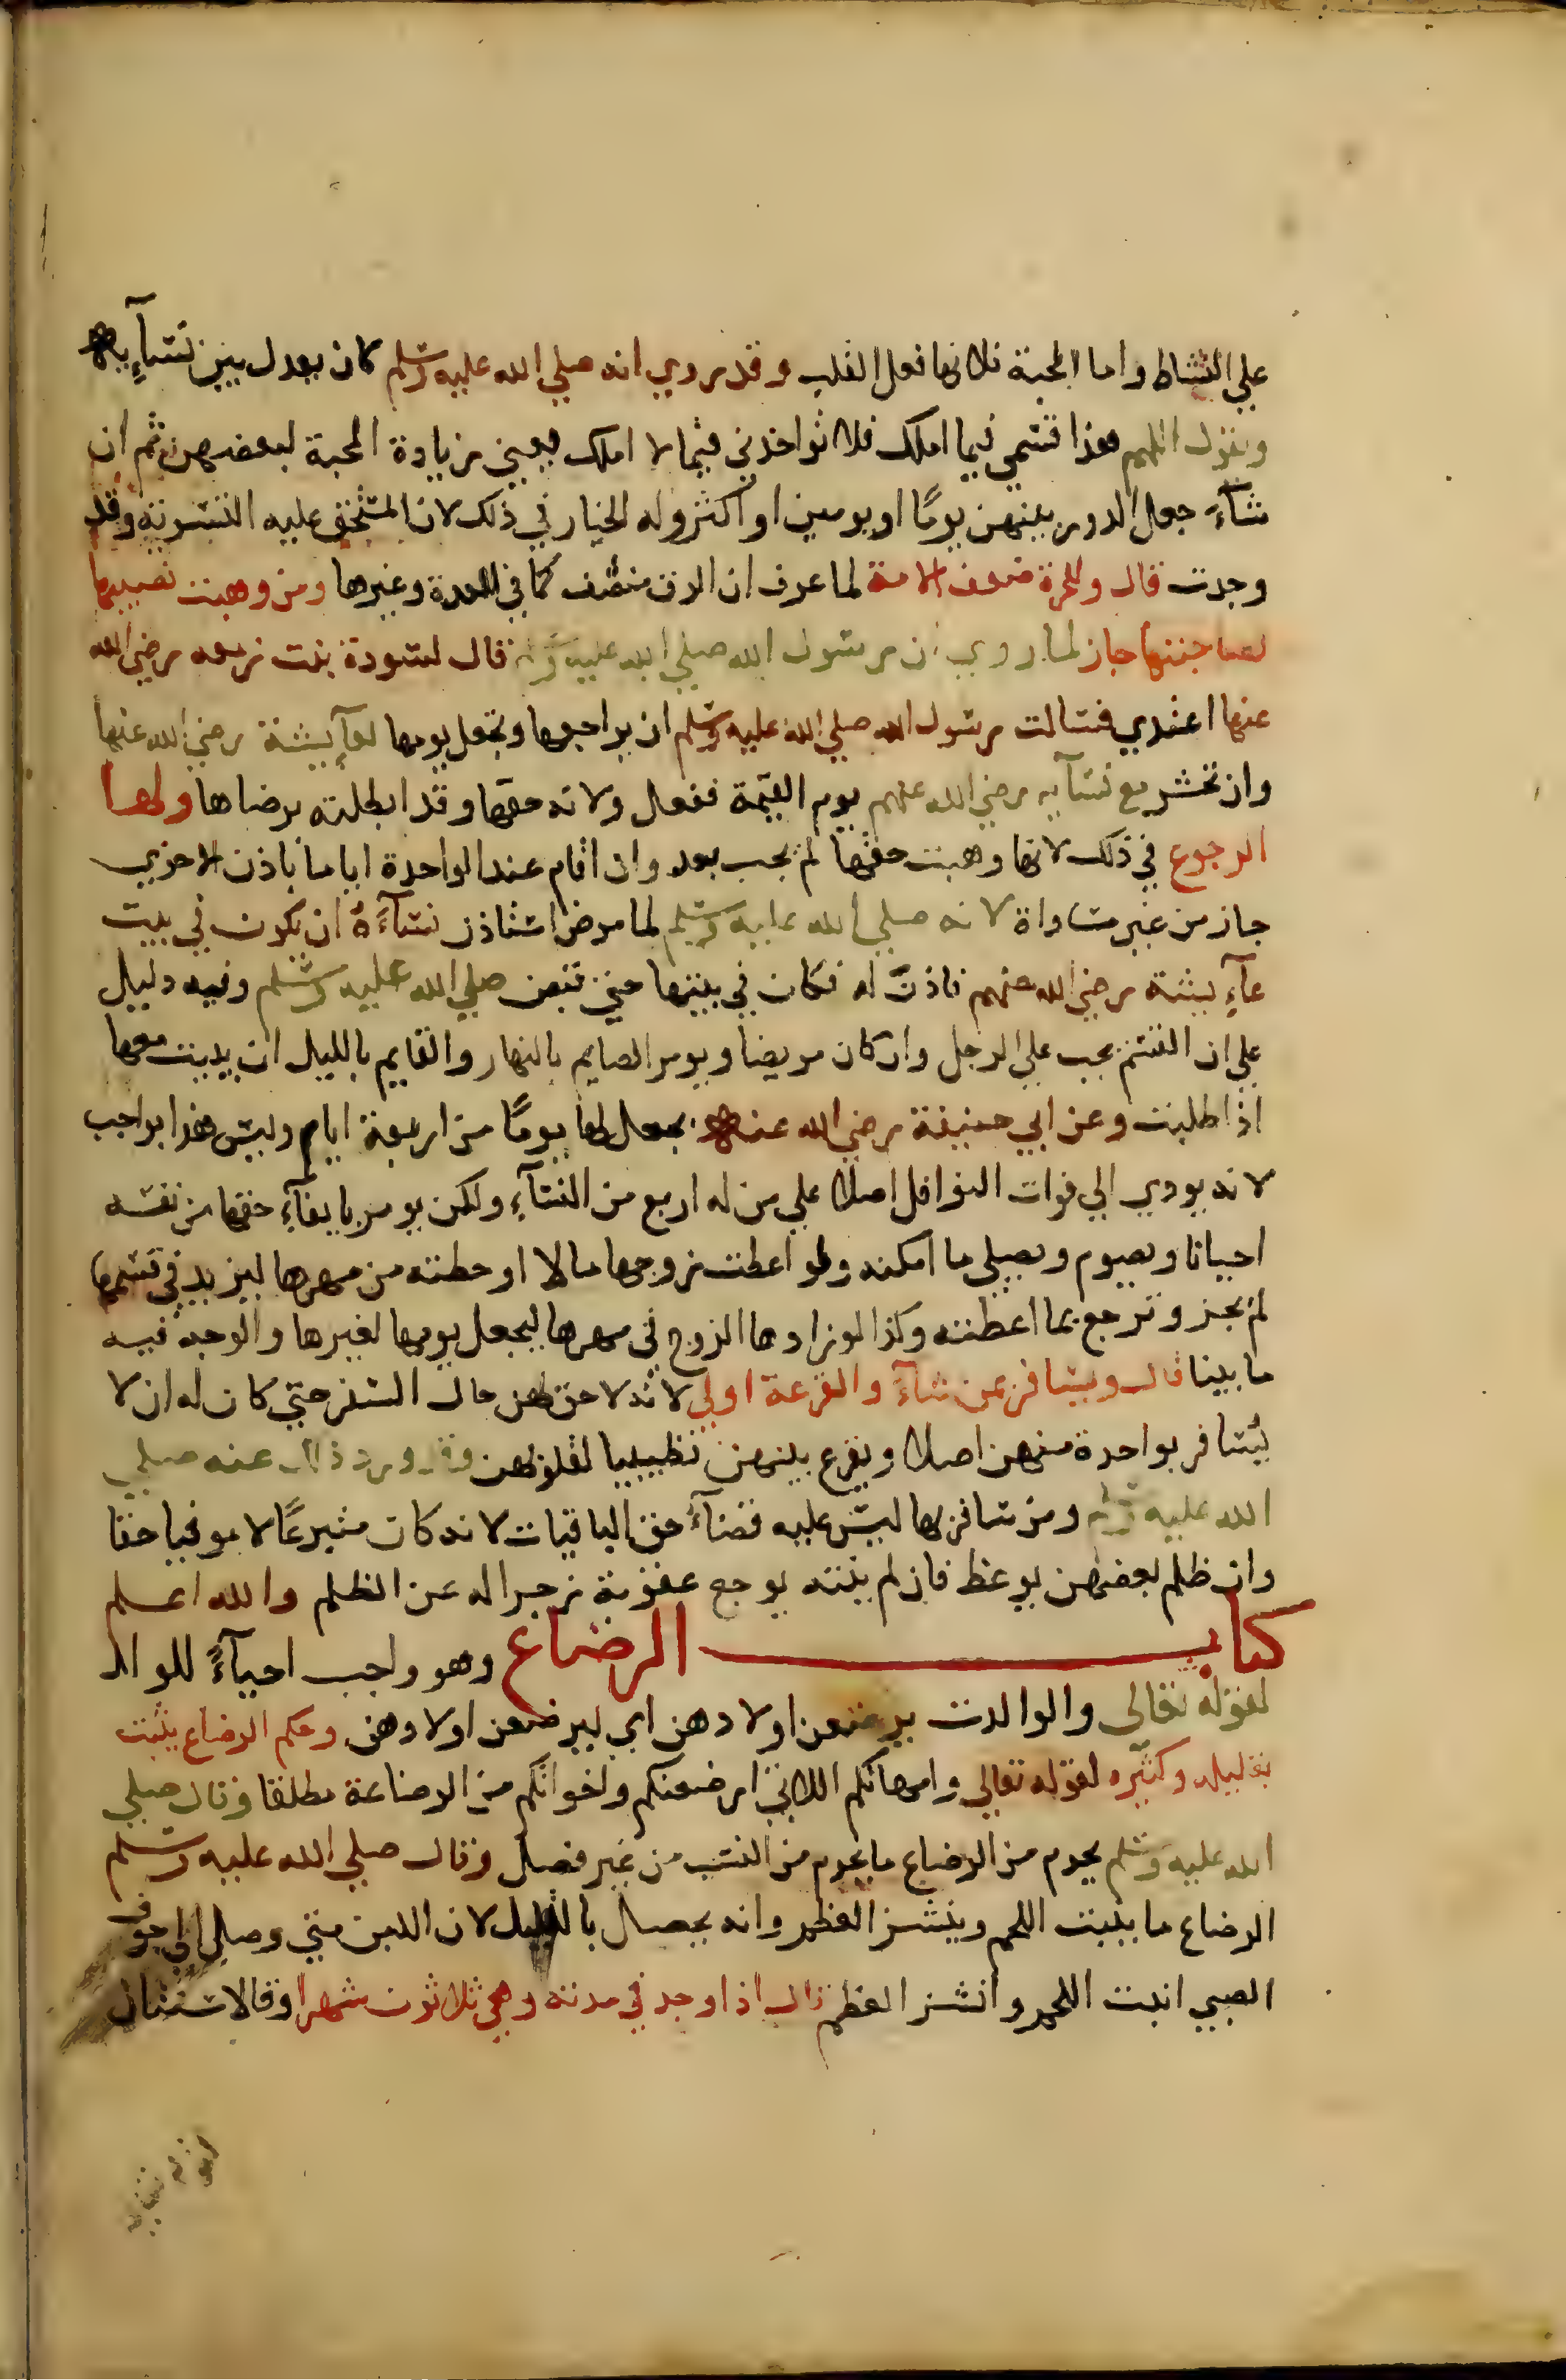 علي النشاط واما المحبة فلانها فعل القلب وقد روي انه صلي الله عليه وسلم كان يعدل بين نسآيه
ويقول اللهم هذا قسمي فيما املك فلا تواخذني فيما لا املك يعني زيادة المحبة لبعضهن ثم ان
شآء جعل الدور بينهن يومًا او يومين او اكثر وله الخيار في ذلك لان المستحق عليه التسوية وقد
وجدت قال وللحرة ضعف الامة لما عرف ان الرق منصف كما في العدة وغيرها ومن وهبت نصيبها
لصاحبتها جاز لما روي ان رسول الله صلي الله عليه وسلم قال لسودة بنت زمعه رضي الله
عنها اعتدي فسالت رسول الله صلي الله عليه وسلم ان يراجعها وتجعل يومها لعآيشة رضي الله عنها
وان تحشر مع نسآيه رضي الله عنهم يوم القيمة ففعل ولانه حقها وقد ابطلته برضاها ولها
الرجوع في ذلك لانها وهبت حقها لم يجب بعد وان اقام عند الواحدة اياما باذن الاخري
جاز من غير مساواة لانه صلي الله عليه وسلم لما مرض استاذن نسآءه ان يكون في بيت
عآيشة رضي الله عنهم فاذن له فكان في بيتها حتي قبض صلي الله عليه وسلم وفيه دليل
علي ان القسم يجب علي الرجل وان كان مريضا ويومر الصايم بالنهار والقايم بالليل ان يبيت معها
اذا طلبت وعن ابي حنيفة رضي الله عنه يجعل لها يومًا من اربعة ايام وليس هذا بواجب
لانه يودي الي فوات النوافل اصلا علي من له اربع من النسآء ولكن يومر بايفآء حقها من نفسه
احيانا ويصوم ويصلي ما امكنه ولو اعطت زوجها مالا او حطته من مهرها ليزيد في قسمها
لم يجز وترجع بما اعطته وكذا لو زادها الزوج في مهرها ليجعل يومها لغيرها والوجه فيه
ما بينا قال ويسافر بمن شآء والقرعة اولي لانه لا حق لهن حال السفر حتي كان له ان لا
يسافر بواحدة منهن اصلا ويقرع بينهن تطييبا لقلوبهن وقد ورد ذلك عنه صلي
الله عليه وسلم ومن سافر بها ليس عليه قضآء حق الباقيات لانه كان متبرعًا لا موفيا حقا
وان ظلم بعضهن يوعظ فان لم ينته يوجع عقوبة زجرا له عن الظلم والله اعلم
كتاب الرضاع وهو واجب احيآءً للولد
لقوله تعالي والوالدت يرضعن اولادهن اي ليرضعن اولادهن وحكم الرضاع يثبت
بقليله وكثيره لقوله تعالي وامهاتكم اللاتي ارضعنكم واخواتكم من الرضاعة مطلقا وقال صلي
الله عليه وسلم يحرم من الرضاع ما يحرم من النسب من غير فصل وقال صلي الله عليه وسلم
الرضاع ما ينبت اللحم وينشز العظم وانه يحصل بالقليل لان اللبن متي وصل الي جوف
الصبي انبت اللحم وانشز العظم قال اذا وجد في مدته وهي ثلاثون شهرا وقالا سنتان